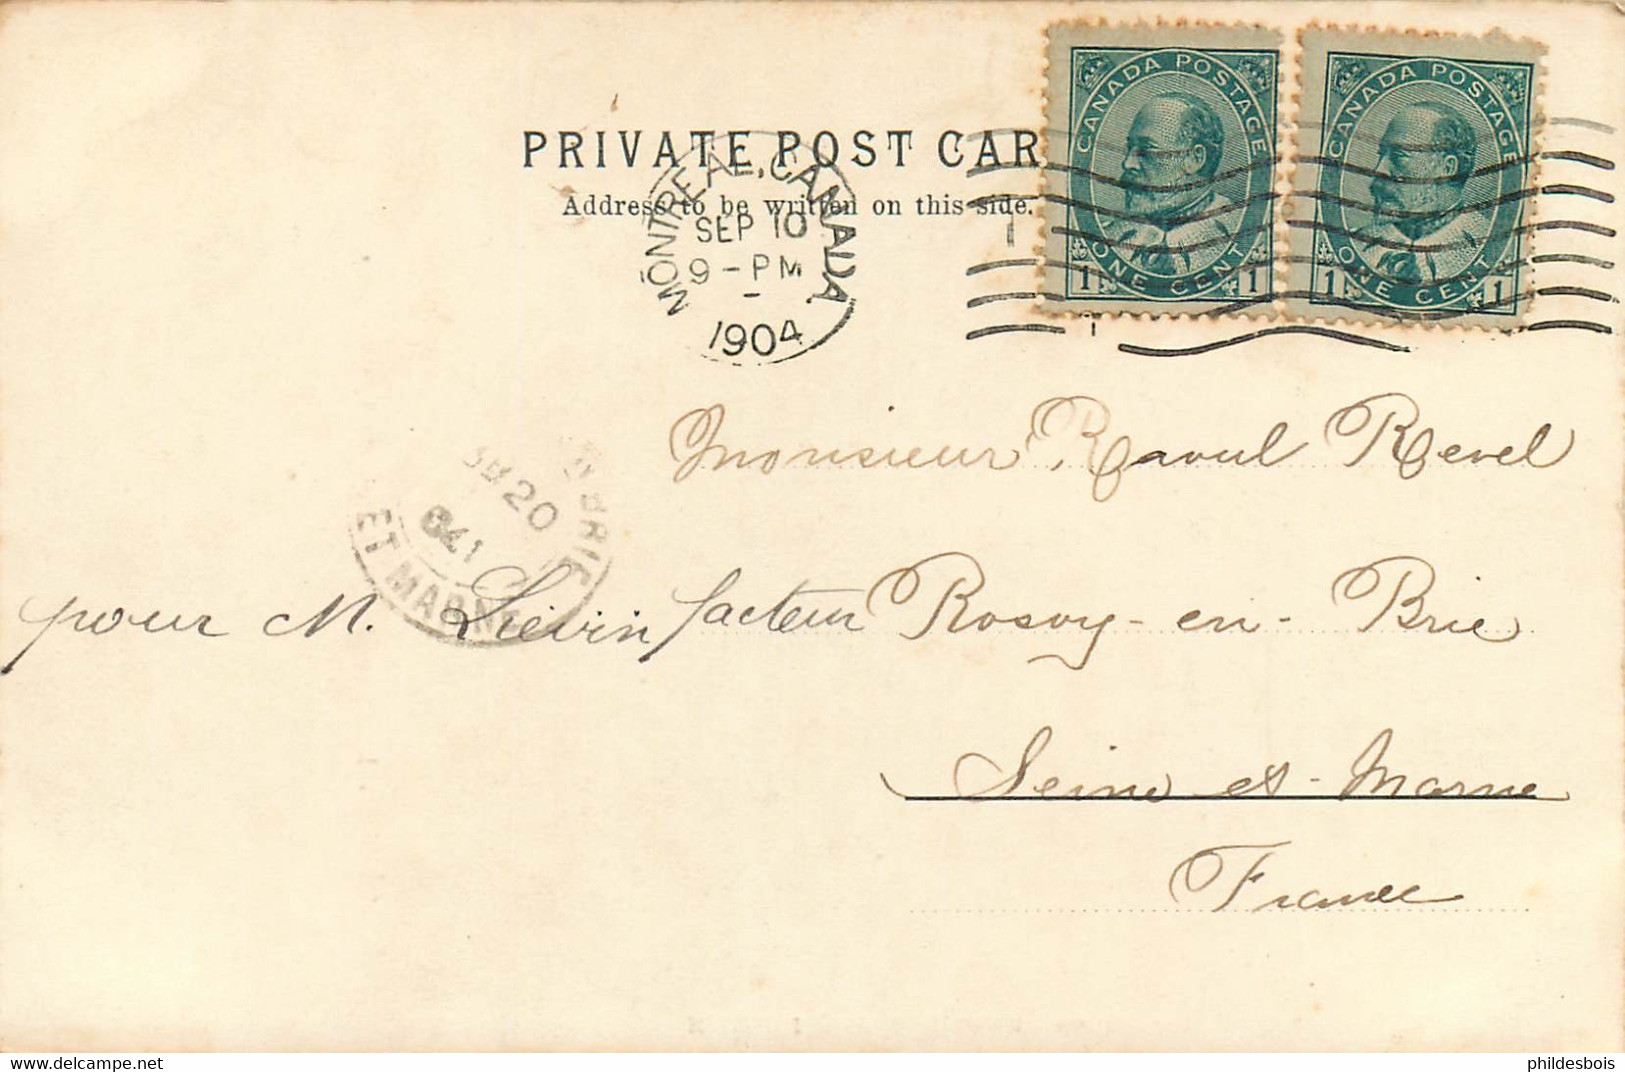 CANADA POSTAGE
ONE CENT
1 1
CANADA POSTAGE
ONE CENT
1 1
PRIVATE POST CAR
Address to be written on this side.
MONTREAL, CANADA
SEP 10
9-PM
1904
Monsieur Raoul Revel
20
04
BRIE
ET MARNE
pour M. Liévin facteur Rosoy-en-Brie
Seine et-Marne
France
www.delcampe.net
phildesbois